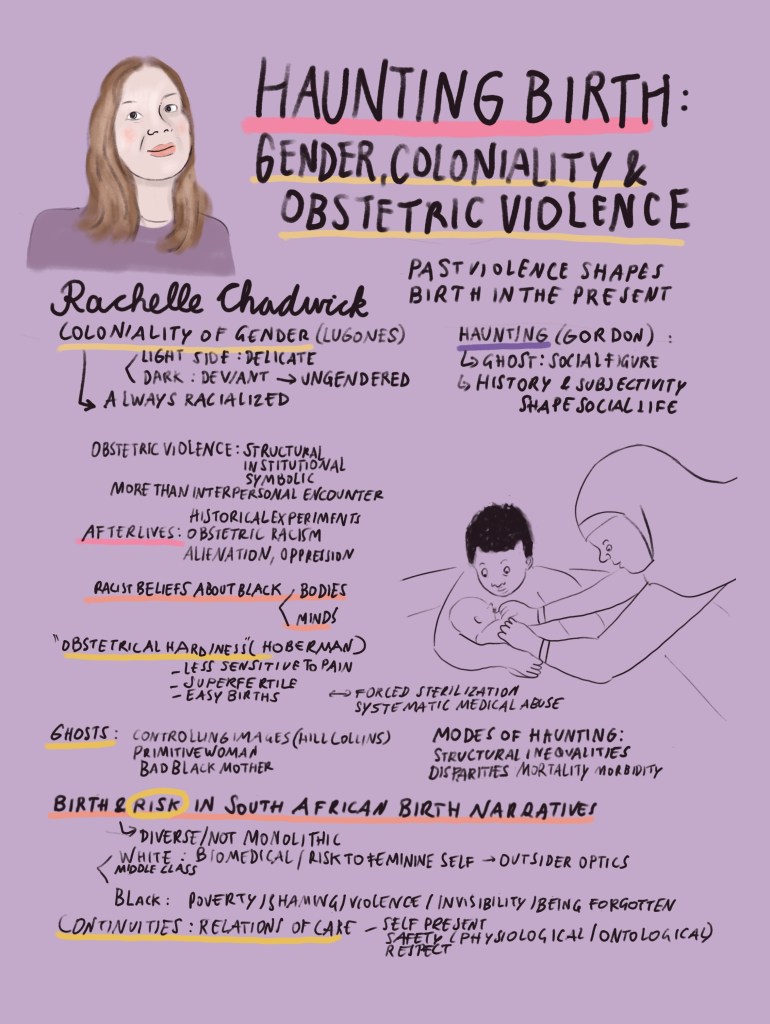 HAUNTING BIRTH:
GENDER, COLONIALITY &
OBSTETRIC VIOLENCE
Rachelle Chadwick
PAST VIOLENCE SHAPES
BIRTH IN THE PRESENT
COLONIALITY OF GENDER (LUGONES)
LIGHT SIDE: DELICATE
DARK: DEVIANT → UNGENDERED
ALWAYS RACIALIZED
HAUNTING (GORDON):
GHOST: SOCIAL FIGURE
HISTORY & SUBJECTIVITY
SHAPE SOCIAL LIFE
OBSTETRIC VIOLENCE: STRUCTURAL
INSTITUTIONAL
SYMBOLIC
MORE THAN INTERPERSONAL ENCOUNTER
HISTORICAL EXPERIMENTS
AFTERLIVES: OBSTETRIC RACISM
ALIENATION, OPPRESSION
RACIST BELIEFS ABOUT BLACK BODIES
MINDS
"OBSTETRICAL HARDINESS" (HOBERMAN)
- LESS SENSITIVE TO PAIN
- SUPERFERTILE
- EASY BIRTHS ↔ FORCED STERILIZATION
SYSTEMATIC MEDICAL ABUSE
GHOSTS: CONTROLLING IMAGES (HILL COLLINS)
PRIMITIVE WOMAN
BAD BLACK MOTHER
MODES OF HAUNTING:
STRUCTURAL INEQUALITIES
DISPARITIES MORTALITY MORBIDITY
BIRTH & RISK IN SOUTH AFRICAN BIRTH NARRATIVES
DIVERSE/NOT MONOLITHIC
WHITE: BIOMEDICAL / RISK TO FEMININE SELF → OUTSIDER OPTICS
MIDDLE CLASS
BLACK: POVERTY/SHAMING/VIOLENCE/INVISIBILITY/BEING FORGOTTEN
CONTINUITIES: RELATIONS OF CARE - SELF PRESENT
SAFETY (PHYSIOLOGICAL/ONTOLOGICAL)
RESPECT